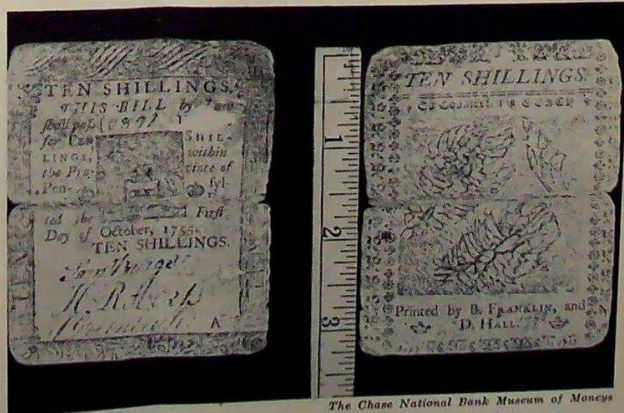 TEN SHILLINGS.
THIS BILL by Law
shall pass
for TEN SHIL-
LINGS, within
the Pro- vince of
Pen- syl-
ted the First
Day of October, 1755.
TEN SHILLINGS.
A
1
2
3
TEN SHILLINGS
To Counterfeit is DEATH
Printed by B. FRANKLIN, and
D. HALL.
The Chase National Bank Museum of Moneys